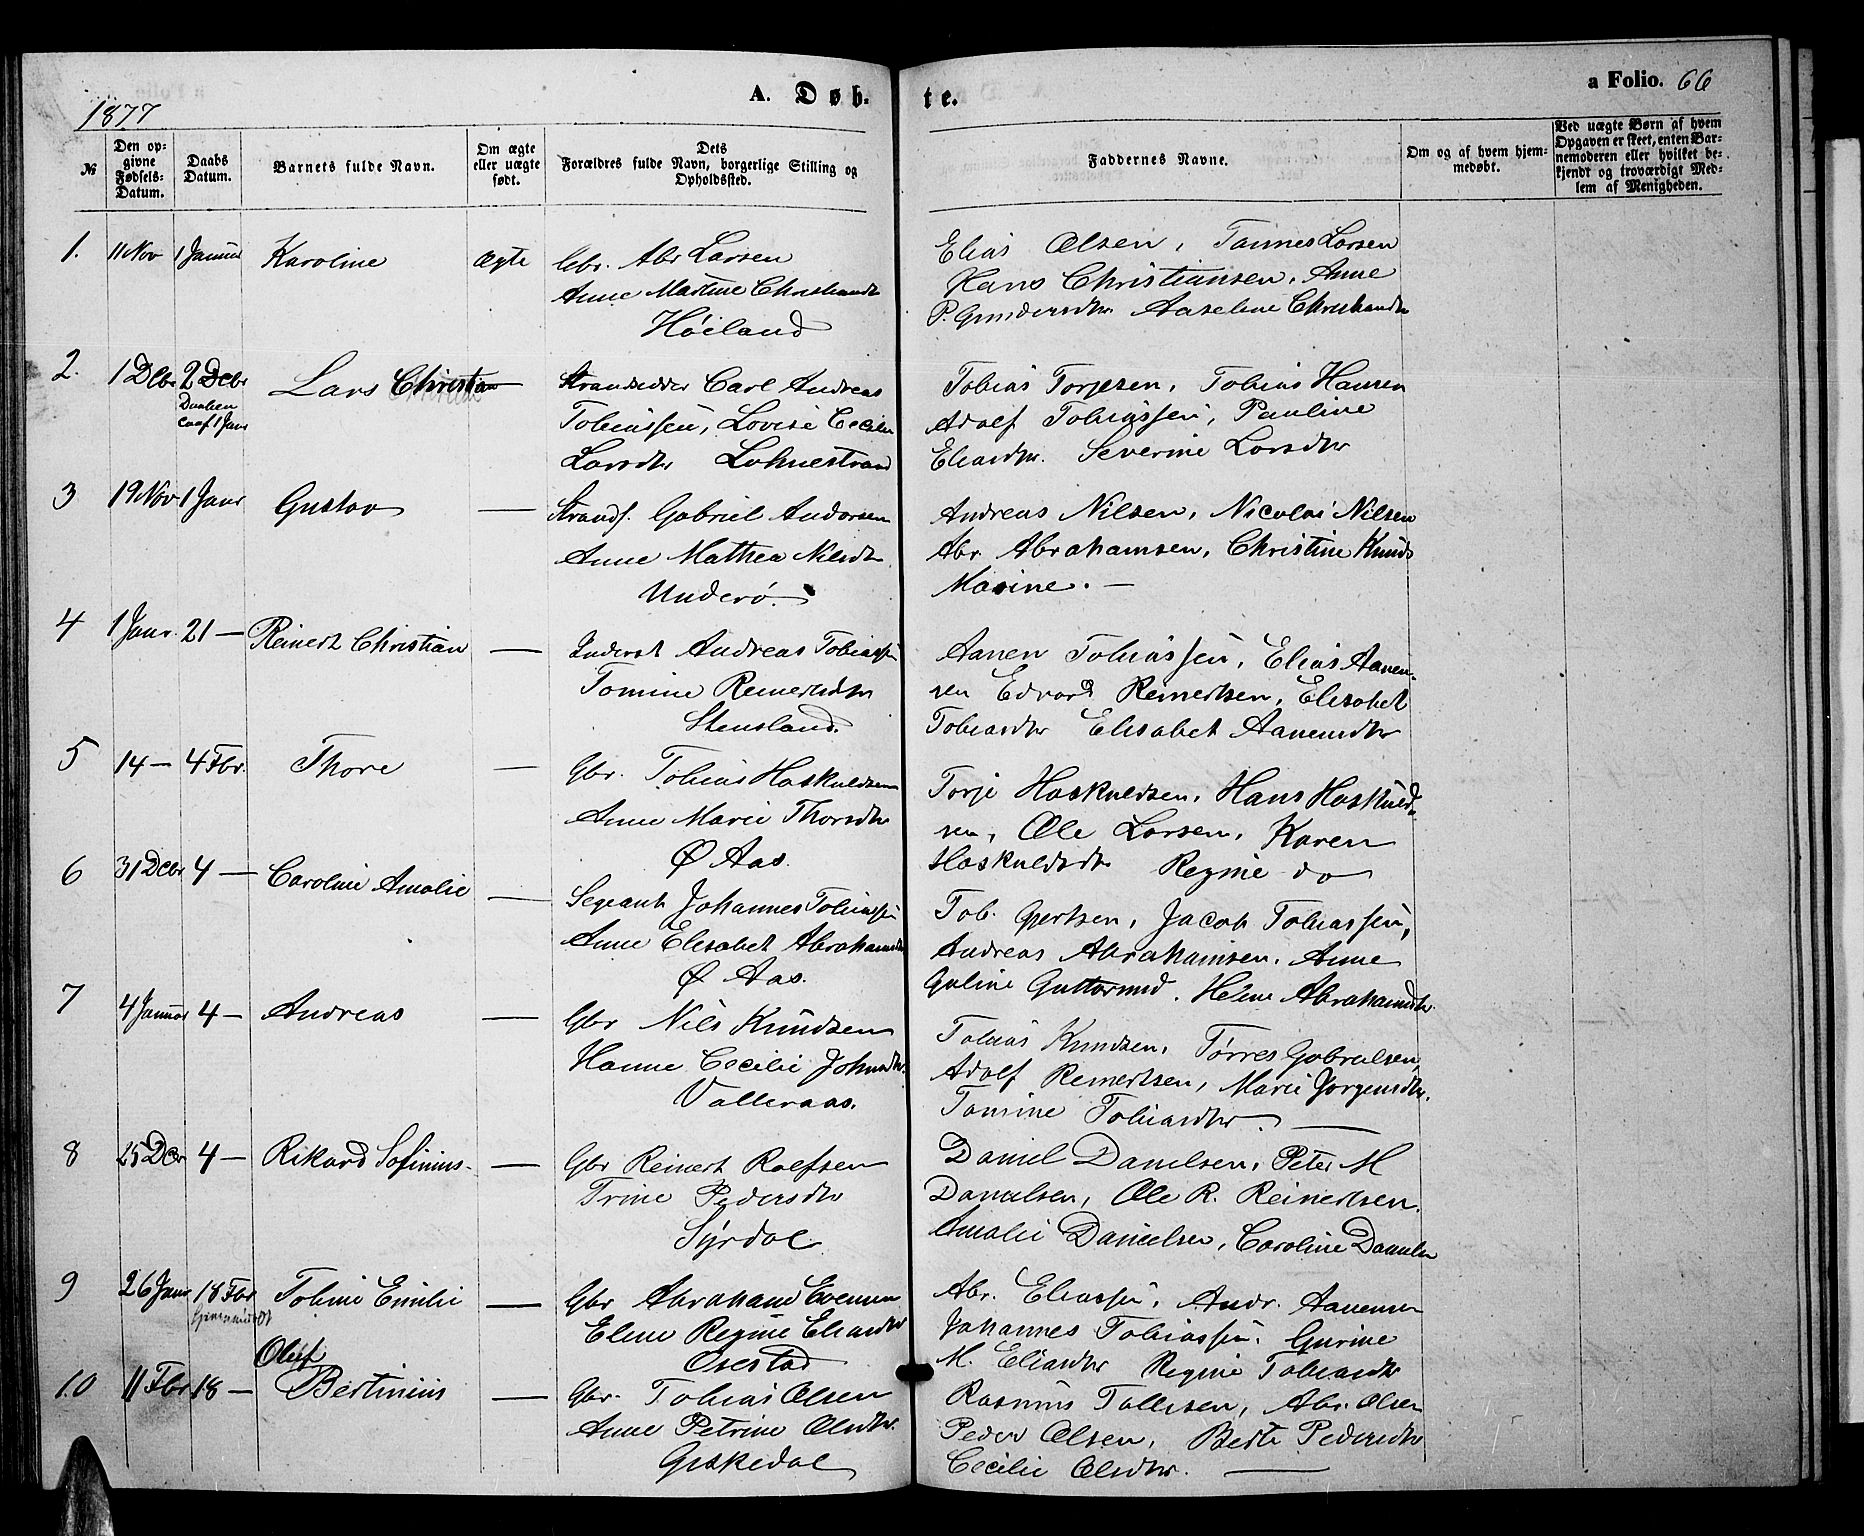 1877
A. Døb-
te.
a Folio. 66
№
Den op-
givne
Fødsels-
Datum.
Daabs
Datum.
Barnets fulde Navn.
Om ægte
eller uægte
født.
Dets
Forældres fulde Navn, borgerlige Stilling og
Opholdssted.
Faddernes Navne.
Om og af hvem hjem-
medøbt.
Ved uægte Børn af hvem
Opgaven er skeet, enten Bar-
nemoderen eller hvilket be-
kjendt og troværdigt Med-
lem af Menigheden.
1. 11 Nov 1 Januar Karoline Ægte Gbr. Abr Larsen
Anne Martine Christiansdtr
Høiland
Elias Olsen, Tønnes Larsen
Hans Christiansen, Anne
P. Gundersdtr Aaselene Christiansdtr
2. 1 Dcbr 2 Dcbr Lars Christian Strandsidder Carl Andreas
Daaben
1 Janr
Tobiassen, Lovise Cecilie
Larsdtr Lohnestrand
Tobias Torjesen, Tobias Hansen
Adolf Tobiassen, Pauline
Eliasdtr. Severine Larsdtr
3 19 Nov 1 Janr Gustav — Strands. Gabriel Andersen
Anne Mathea Nilsdtr
Underø.
Andreas Nilsen, Nicolai Nilsen
Abr. Abrahamsen, Christine Knuds
Marine. —
4 1 Janr. 21 — Reinert Christian — Inderst Andreas Tobiassen
Tomine Reinertsdtr
Stensland.
Aanen Tobiassen, Elias Aanen-
sen Edvard Reinertsen, Elisabet
Tobiasdtr Elisabet Aanensdtr
5 14 — 4 Fbr. Thore — Gbr. Tobias Haskuldsen
Anne Marie Thorsdtr
Ø Aas.
Torje Haskuldsen, Hans Haskuld-
sen, Ole Larsen, Karen
Haskuldsdtr Regine do
6 31 Dcbr 4 — Caroline Amalie — Segeant Johannes Tobiassen
Anne Elisabet Abrahamsdtr
Ø Aas.
Tob. Gjertsen, Jacob Tobiassen,
Andreas Abrahamsen, Anne
Guline Guttormsd. Helene Abrahamsdtr
7 4 Januar 4 — Andreas — Gbr Nils Knudsen
Hanne Cecilie Johnsdtr.
Valleraas.
Tobias Knudsen, Tørres Gabrielsen,
Adolf Reinertsen, Marie Jørgensdtr.
Tomine Tobiasdtr. —
8 25 Dcbr 4 — Rikard Sofinius. — Gbr Reinert Roelfsen
Trine Pedersdtr
Syrdal
Daniel Danielsen, Peter M
Danielsen, Ole R. Reinertsen.
Amalie Danielsen, Caroline Danielsen
9 26 Janr 18 Fbr Tobine Emilie — Gbr Abraham Evensen
Elene Regine Eliasdtr
Osestad
Abr. Eliassen, Andr. Aanensen
Johannes Tobiassen. Gurine
M. Eliasdtr Regine Tobiasdtr
Oluf
10 11 Fbr 18 — Bertinius — Gbr. Tobias Olsen
Anne Petrine Olsdtr.
Giskedal
Rasmus Tallisen, Abr. Olsen
Peder Olsen, Berte Pedersdtr
Cecilie Olsdtr. —